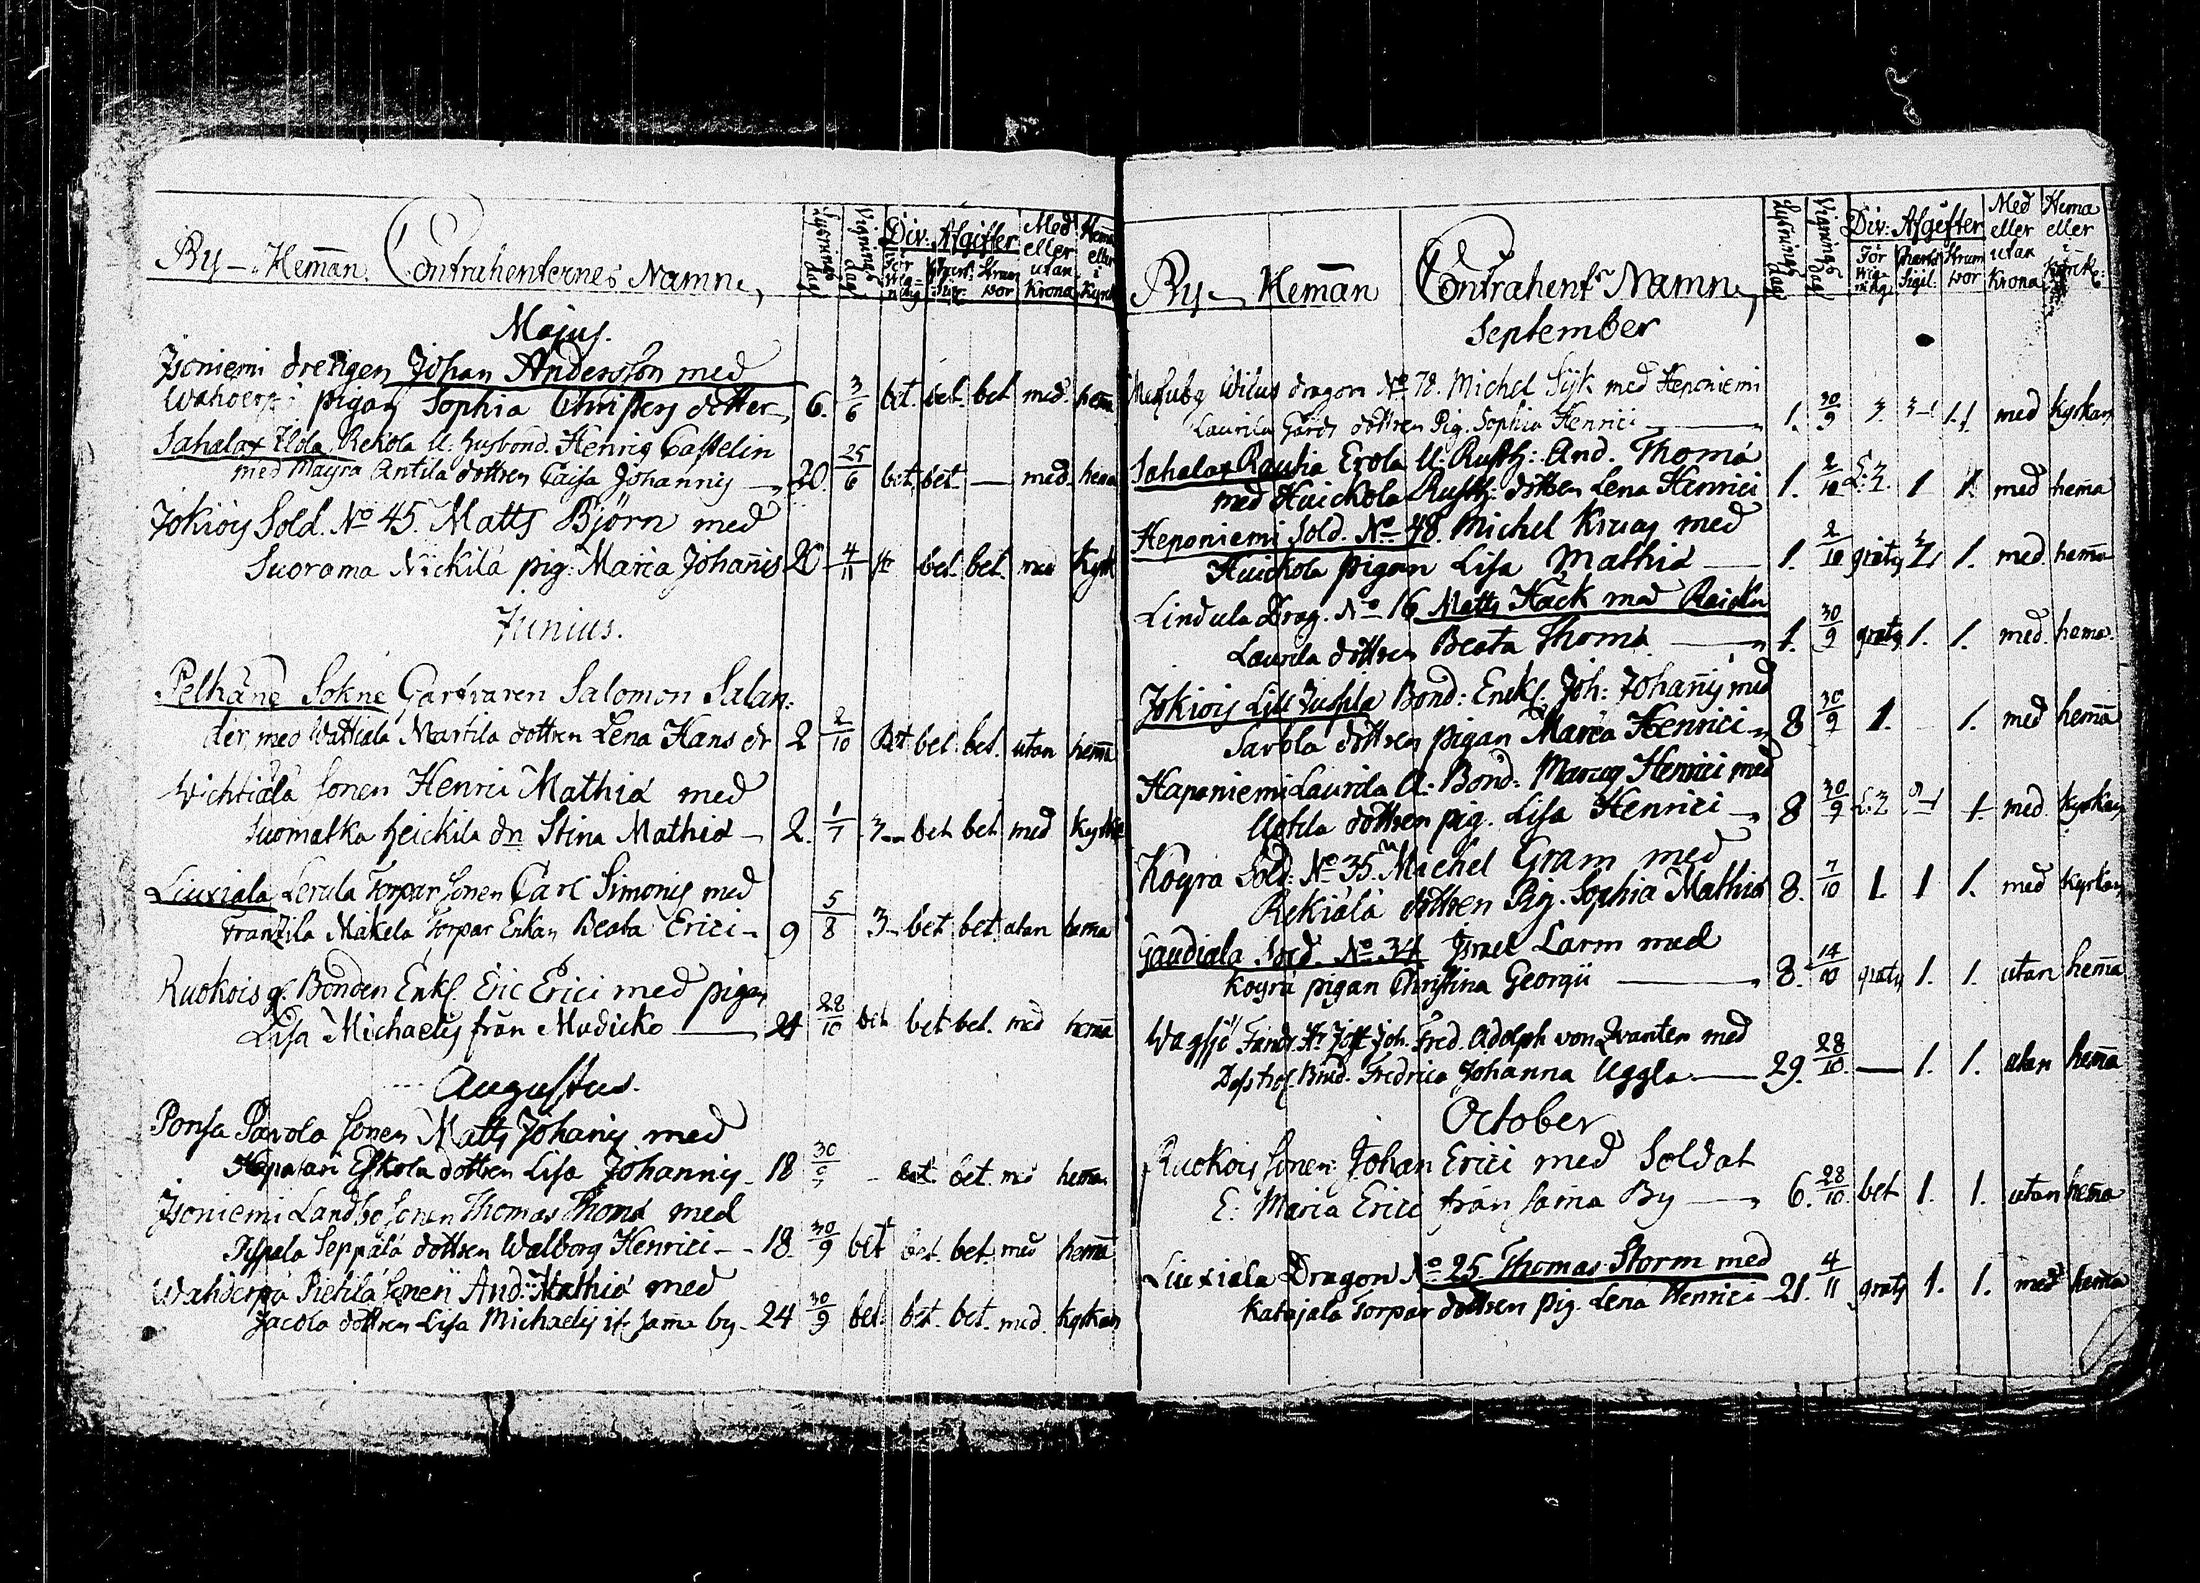 By - Heman. Contrahenternes Namn, Lysnings dag Vignings dag Div: Afgifter Med eller utan Krona Hema eller i Kyrk
Majus.
Isoniemi drengen Johan Andersson med
pigan Sophia dotter 6. 3/6 bet. bet. bet med hema
Sahalax Rekola U. husbond. Henric Casselin
med Mayra Antila dottren Caisa Johannis 20. 25/6 bet. bet. — med. hema
Jokiois Sold. No 45. Matts Björn med
Suorama Nickilä pig: Maria Johanis 20 4/11 bet. bet. med Kyrk
Junius.
Pelkäne Sokne Garfvaren Salomon Salan-
der med Wattiala Martila dottren Lena Hans dr 2 2/10 Bet bet. bet. utan hema
Wichtiälä sonen Henric Mathiæ med
Suomatka heickilä dn Stina Mathiæ - 2. 1/7 3 - bet bet. med kyrke
Liuxiala Lerula Torpar sonen Carl Simonis med
Franzila Makela Torpar Enkan Beata Erici - 9 5/8 3 - bet bet utan hema
Kuokois Bonden Enkl. Eric Erici med pigan
Lisa Michaelis från 28/10 bet bet bet. med hema
Augustus.
Ponsa Pavola sonen Matts Johanis med
Eskola dottren Lisa Johannis - 18 30/9 - bet. bet. med hema
Isoniemi Landbo sonen Thomas Thomæ med
Seppälä dottren Walborg Henrici - - 18 30/9 bet bet. bet. med hema
Pietilä sonen And: Mathiæ med
Jacola dottren Lisa Michaelis if. sama by - 24 30/9 bet. bet. bet. med. kyrkan
By - Heman Contrahents Namn, Lysnings dag Vignings dag Div: Afgifter Med eller utan Krona Hema eller i Kyrke
September
dragon No 78. Michel Sijk med Heponiemi
Laurila Gårds dottren Pig. Sophia Henrici 1. 30/9 3. med kyrkan
Sahalax Rautia Erola U. Rusth: And. Thomæ
med Huickola Rusth: dottren Lena Henrici 1. 2/10 1 1. med hema
Heponiemi Sold. No 48. Michel Kruus med
Huickola pigan Lisa Mathiæ 1. 2/10 gratis 1. med. hema
Lindula Drag. No 16 Matts Hack med
Laurila dottren Beata Thomæ 1. 30/9 gratis 1. 1. med. hema.
Jokiois Lill Bond: Enkl. Joh: Johanis med
Savola dottren pigan Maria Henrici 8 30/9 1. 1. med hema
Haponiemi Laurila U. Bond: Marcus Henrici med
Uotila dottren pig. Lisa Henrici 8 30/9 1. med. kyrkan
Koyra Sold: No 35. Michel Gram med
Rekiälä dottren Pig. Sophia Mathiæ 8. 7/10 1 1 1. med kyrkan
Gaudiala Sold. No 34 Israel Larm med
Koyra pigan Christina Georgii 8. 14/10 gratis 1. 1. utan hema
Joh. Fred. Adolph von Qvanten med
Fredrica Johanna Uggla 29. 28/10. — 1. 1. utan hema
October
Kuokois sonen Johan Erici med Soldat
E: Maria Erici från sama By 6. 28/10 bet 1. 1. utan hema
Liuxiala Dragon No 25. Thomas Storm med
Katajala Torpar dottren pig. Lena Henrici - 21. 4/11 gratis 1. 1. med hema